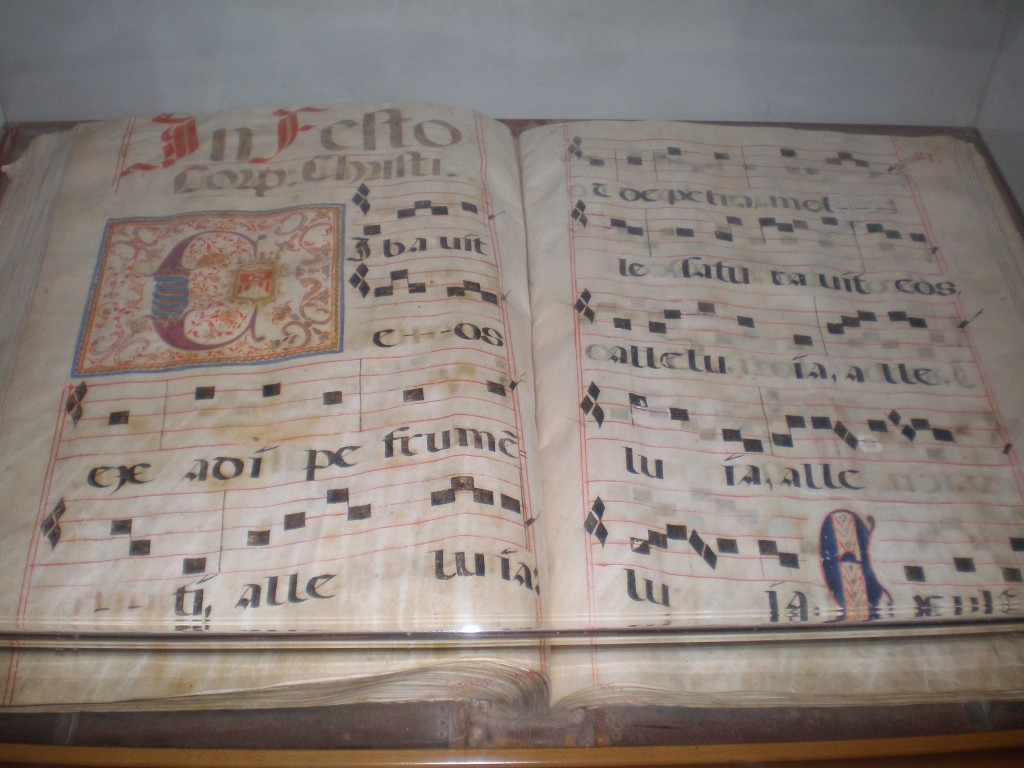 In Festo
Corp: Christi.
CIbavit
e - - os
exe adi pe frumē-
- - ti, alle lu ia:
t de petra, mel - - -
le satu ra vit eos
allelu ia, a lle.
lu ia, alle
lu ia: